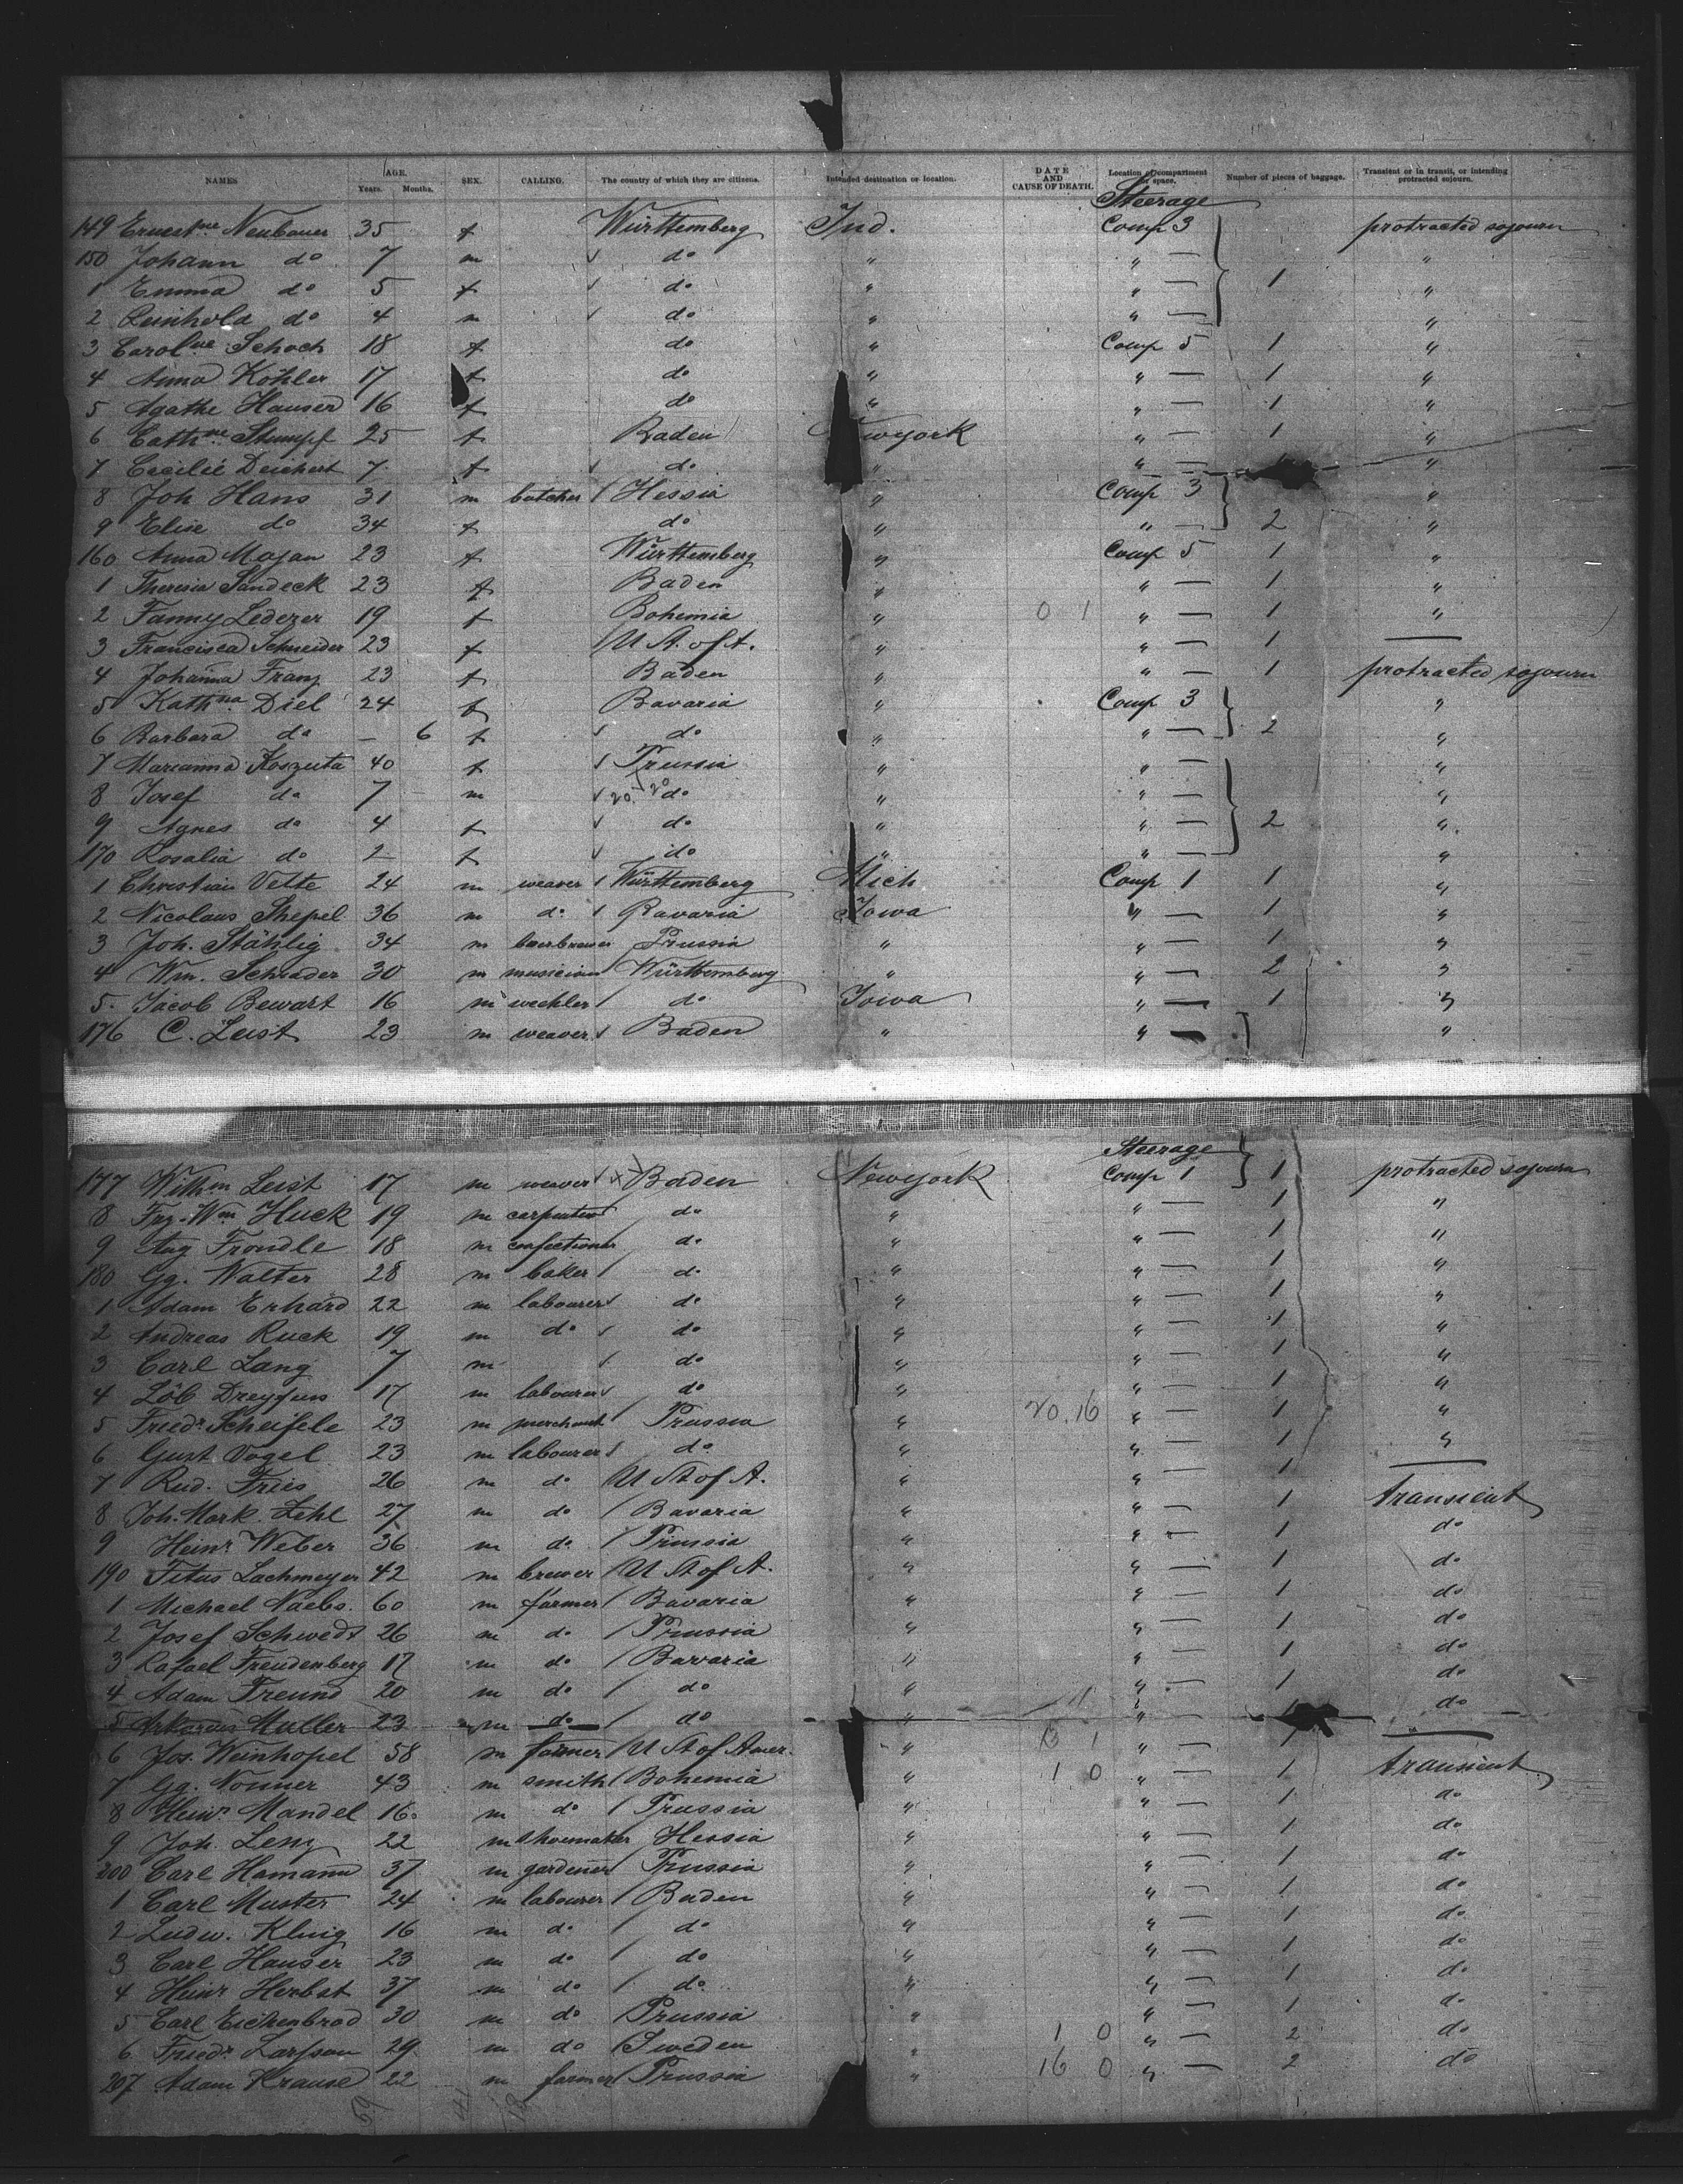 NAMES AGE. Years. Months. SEX. CALLING. The country of which they are citizens. Intended destination or location. DATE AND CAUSE OF DEATH. Location of compartment or space. Number of pieces of baggage. Transient or in transit, or intending protracted sojourn.
Steerage
149 Ernestne Neubauer 35 f Württemberg Ind. Comp 3 protracted sojourn
150 Johann do 7 m do " " — "
1 Emma do 5 f do " " — 1 "
2 Reinhold do 4 m do " " — "
3 Carolne Schoch 18 f do " Comp 5 1 "
4 Anna Köhler 17 f do " " — 1 "
5 Agathe Hauser 16 f do " " — 1 "
6 Cathne Stumpf 25 f Baden Newyork " — 1 "
7 Cecilie Deichert 7 f do " " — "
8 Joh Hans 31 m butcher Hessia " Comp 3 "
9 Elise do 34 f do " " — 2 "
160 Anna Mojan 23 f Württemberg " Comp 5 1 "
1 Theresia Sandeck 23 f Baden " " — 1 "
2 Fanny Lederer 19 f Bohemia " 0 1 " — 1 "
3 Francisca Schneider 23 f U St. of A. " " — 1 —
4 Johanna Franz 23 f Baden " " — 1 protracted sojourn
5 Kathna Diel 24 f Bavaria " Comp 3 "
6 Barbara do — 6 f do " " — 2 "
7 Marianna Koszuta 40 f Prussia " " — "
8 Josef do 7 m do " " — "
9 Agnes do 4 f do " " — 2 "
170 Rosalia do 2 f do " " — "
1 Christian Vette 24 m weaver Württemberg Mich Comp 1 1 "
2 Nicolaus Shepel 36 m do Bavaria Iowa " — 1 "
3 Joh. Stählig 34 m beerbrewer Prussia " " — 1 "
4 Wm. Schrader 30 m musician Württemberg " " — 2 "
5 Jacob Bewart 16 m do Iowa " — 1 "
176 C. Leist 23 m weaver Baden " " — "
Steerage
177 Wilhm Leist 17 m weaver Baden Newyork Comp 1 1 protracted sojourn
8 Frz. Wm Huck 19 m carpenter do " " — 1 "
9 Aug Trondle 18 m confectioner do " " — 1 "
180 Gg. Walter 28 m baker do " " — 1 "
1 Adam Erhard 22 m labourer do " " — 1 "
2 Andreas Ruck 19 m do do " " — 1 "
3 Carl Lang 7 m do " " — 1 "
4 Löb Dreyfuss 17 m labourer do " " — 1 "
5 Friedr Scheifele 23 m merchant Prussia " 20.16 " — 1 "
6 Gust Vogel 23 m labourer do " " — 1 "
7 Rud. Fries 26 m do U St of A. " " — 1 —
8 Joh. Mark. Lehl 27 m do Bavaria " " — 1 transient
9 Heinr Weber 36 m do Prussia " " — 1 do
190 Titus Lachmeyer 42 m brewer U St of A. " " — 1 do
1 Michael Naebs. 60 m farmer Bavaria " " — 1 do
2 Josef Schwedt 26 m do Prussia " " — 1 do
3 Rafael Freudenberg 17 m do Bavaria " " — 1 do
4 Adam Freund 20 m do do " " — 1 do
5 Muller 23 m do do " " — do
6 Jos. Weinhopel 58 m farmer U St of Amer. " " — 1 —
7 Gg. Nonner 43 m smith Bohemia " 1 0 " — 1 transient
8 Heinr Mandel 16 m do Prussia " " — 1 do
9 Joh. Lenz 22 m shoemaker Hessia " " — 1 do
200 Carl Hamann 37 m gardener Prussia " " — 1 do
1 Carl Muster 24 m labourer Baden " " — 1 do
2 Ludw. Klug 16 m do do " " — 1 do
3 Carl Hauser 23 m do do " " — 1 do
4 Heinr Herbst 37 m do do " " — 1 do
5 Carl Eichenbrod 30 m do Prussia " " — 1 do
6 Friedr Larsson 29 m do Sweden " 1 0 " — 2 do
207 Adam Krause 22 m farmer Prussia " 16 0 " — 2 do